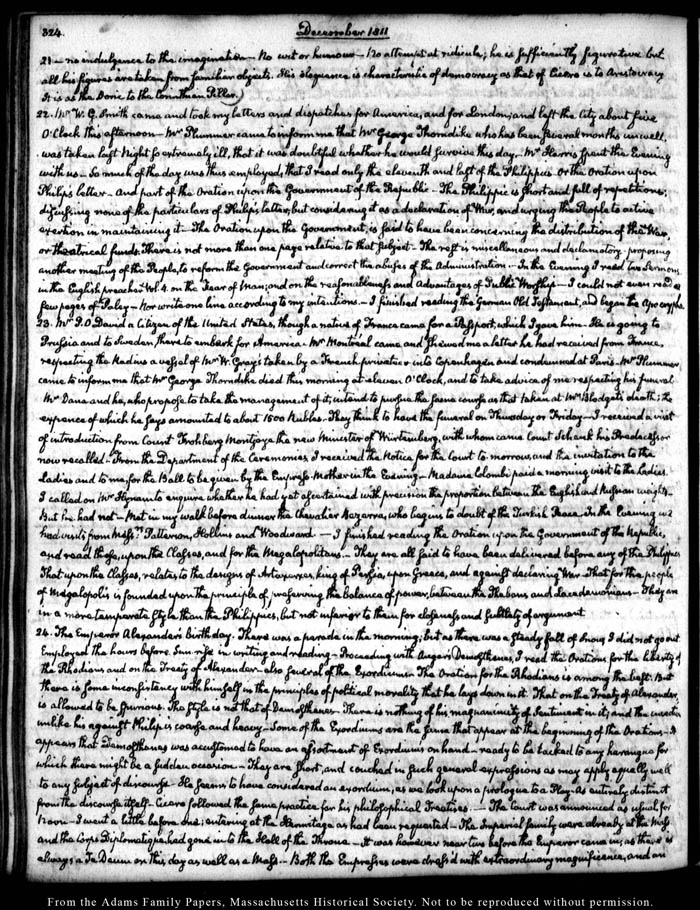 324.
December 1811
21 — no indulgence to the imagination — No wit or humour — No attempt at ridicule; he is sufficiently figurative but
all his figures are taken from familiar objects. His eloquence is characteristic of democracy as that of Cicero is to Aristocracy
It is as the Doric to the Corinthian Pillar.
22. Mr W. G. Smith came and took my letters and dispatches for America, and for London; and left the City about five
O'Clock this afternoon — Mr Plummer came to inform me that Mr George Thorndike who has been several months unwell,
was taken last Night so extremely ill, that it was doubtful whether he would survive this day. Mr Harris spent the Evening
with us — So much of the day was thus employed, that I read only the eleventh and last of the Philippics. Or the Oration upon
Philip's letter — And part of the Oration upon the Government of the Republic — The Philippic is short and full of repetitions;
discussing none of the particulars of Philip's letter, but considering it as a declaration of War, and urging the People to active
exertion in maintaining it — The Oration upon the Government, is said to have been concerning the distribution of the War,
or theatrical funds. There is not more than one page relative to that subject — The rest is miscellaneous and declamatory, proposing
another meeting of the People, to reform the Government and correct the abuses of the Administration — In the Evening I read two Sermons
in the English preacher Vol. 4. on the Fear of Man; and on the reasonableness and Advantages of Public Worship — I could not even read a
few pages of Paley — Nor write one line according to my intentions. — I finished reading the German Old Testament, and began the Apocrypha.
23. Mr P. O. David a Citizen of the United States, though a native of France came for a Passport, which I gave him — He is going to
Prussia and to Sweden, there to embark for America. Mr Montréal came and shewed me a letter he had received from France,
respecting the Radius a vessel of Mr W. Gray's taken by a French privateer into Copenhagen and condemned at Paris. Mr Plummer
came to inform me that Mr George Thorndike died this morning at eleven O'Clock, and to take advice of me respecting his funeral
Mr Dana and he, who propose to take the management of it, intend to pursue the same course as that taken at Mr Blodget's death; the
expence of which he says amounted to about 1500 Rubles. They think to have the funeral on Thursday or Friday — I received a visit
of introduction from Count Frohberg Montjoye the new Minister of Würtemberg, with whom came Count Schenk his Predecessor
now recalled. From the Department of the Ceremonies I received the Notice for the Court to-morrow, and the invitation to the
Ladies and to me for the Ball to be given by the Empress-Mother in the Evening — Madame Colombi paid a morning visit to the Ladies.
I called on Mr Hynam to enquire whether he had yet ascertained with precision the proportion between the English and Russian weights.
But he had not — Met in my walk before dinner the Chevalier Bezerra, who begins to doubt of the Turkish Peace. In the Evening we
had visits from Messrs Patterson, Hollins and Woodward — I finished reading the Oration upon the Government of the Republic,
and read those, upon the Classes, and for the Megalopolitans — They are all said to have been delivered before any of the Philippics
That upon the Classes, relates to the designs of Artaxerxes, king of Persia, upon Greece, and against declaring War. That for the people
of Megalopolis is founded upon the principle of preserving the balance of power, between the Thebans and Lacedemonians — They are
in a more temperate style than the Philippics, but not inferior to them for closeness and subtlety of argument.
24. The Emperor Alexander's birth day. There was a parade in the morning; but as there was a steady fall of Snow, I did not go out
Employed the hours before Sun-rise in writing and reading — Proceeding with Auger's Demosthenes, I read the Orations, for the liberty of
the Rhodians and on the Treaty of Alexander — also several of the Exordiums. The Oration for the Rhodians is among the best. But
there is some inconsistency with himself in the principles of political morality that he lays down in it. That on the Treaty of Alexander,
is allowed to be spurious. The style is not that of Demosthenes. There is nothing of his magnanimity of Sentiment in it; and the invective
unlike his against Philip is coarse and heavy — Some of the Exordiums are the same that appear at the beginning of the Orations — It
appears that Demosthenes was accustomed to have an assortment of Exordiums on hand — ready to be tacked to any harangue for
which there might be a sudden occasion — They are short, and couched in such general expressions as may apply equally well
to any subject of discourse — He seems to have considered an exordium, as we look upon a prologue to a Play — As entirely distinct
from the discourse itself — Cicero followed the same practice for his philosophical Treatises. — The Court was announced as usual for
Noon — I went a little before one; entering at the Hermitage as had been requested — The Imperial family were already at the Mass
and the Corps Diplomatique had gone into the Hall of the Throne — It was however near two before the Emperor came in; as there is
always a Te Deum on this day as well as a Mass — Both the Empresses were dress'd with extraordinary magnificence, and an
From the Adams Family Papers, Massachusetts Historical Society. Not to be reproduced without permission.